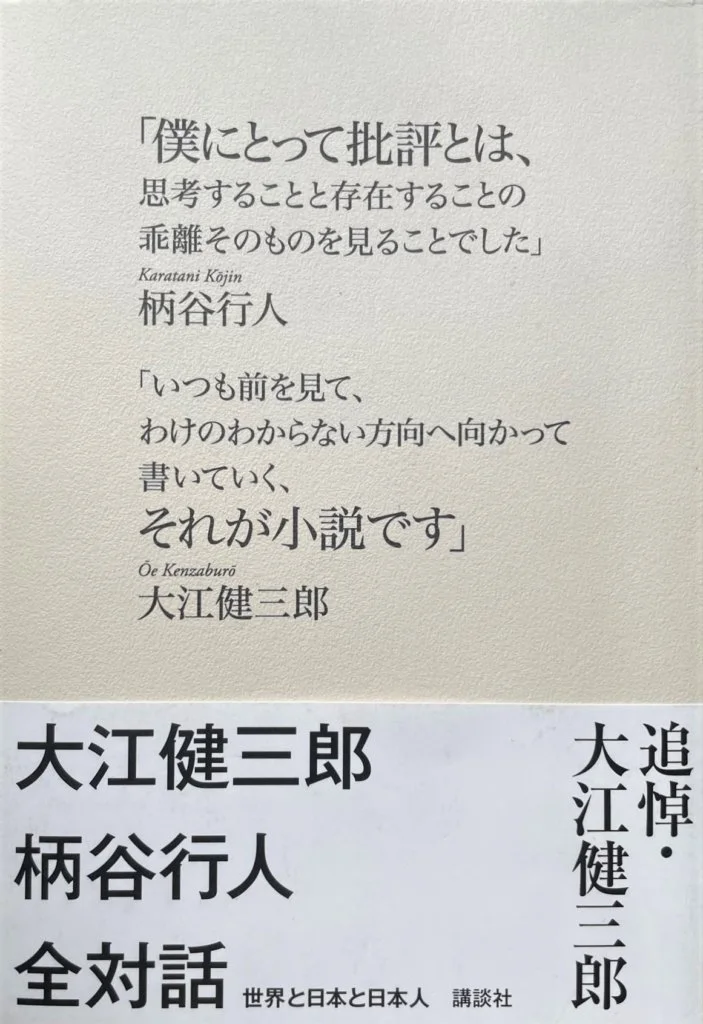 「僕にとって批評とは、
思考することと存在することの
乖離そのものを見ることでした」
Karatani Kōjin
柄谷行人
「いつも前を見て、
わけのわからない方向へ向かって
書いていく、
それが小説です」
Ōe Kenzaburō
大江健三郎
追悼・
大江健三郎
大江健三郎
柄谷行人
全対話
世界と日本と日本人 講談社